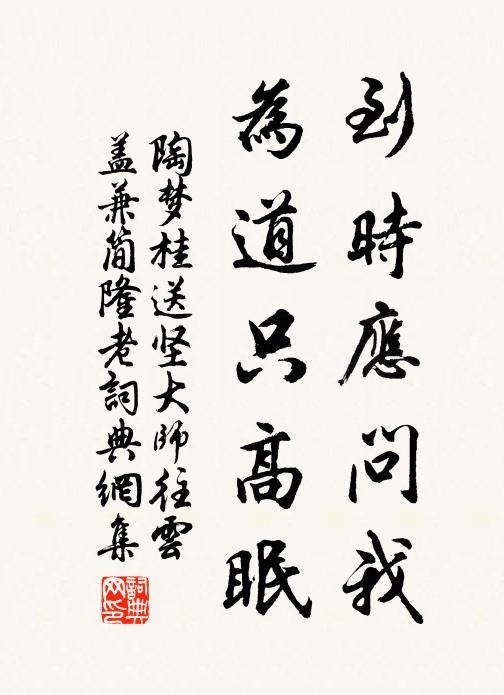 到時應問我
為道只高眠
陶梦桂送坚大师往雲
盖兼简隆老詞典網集
詞典网印